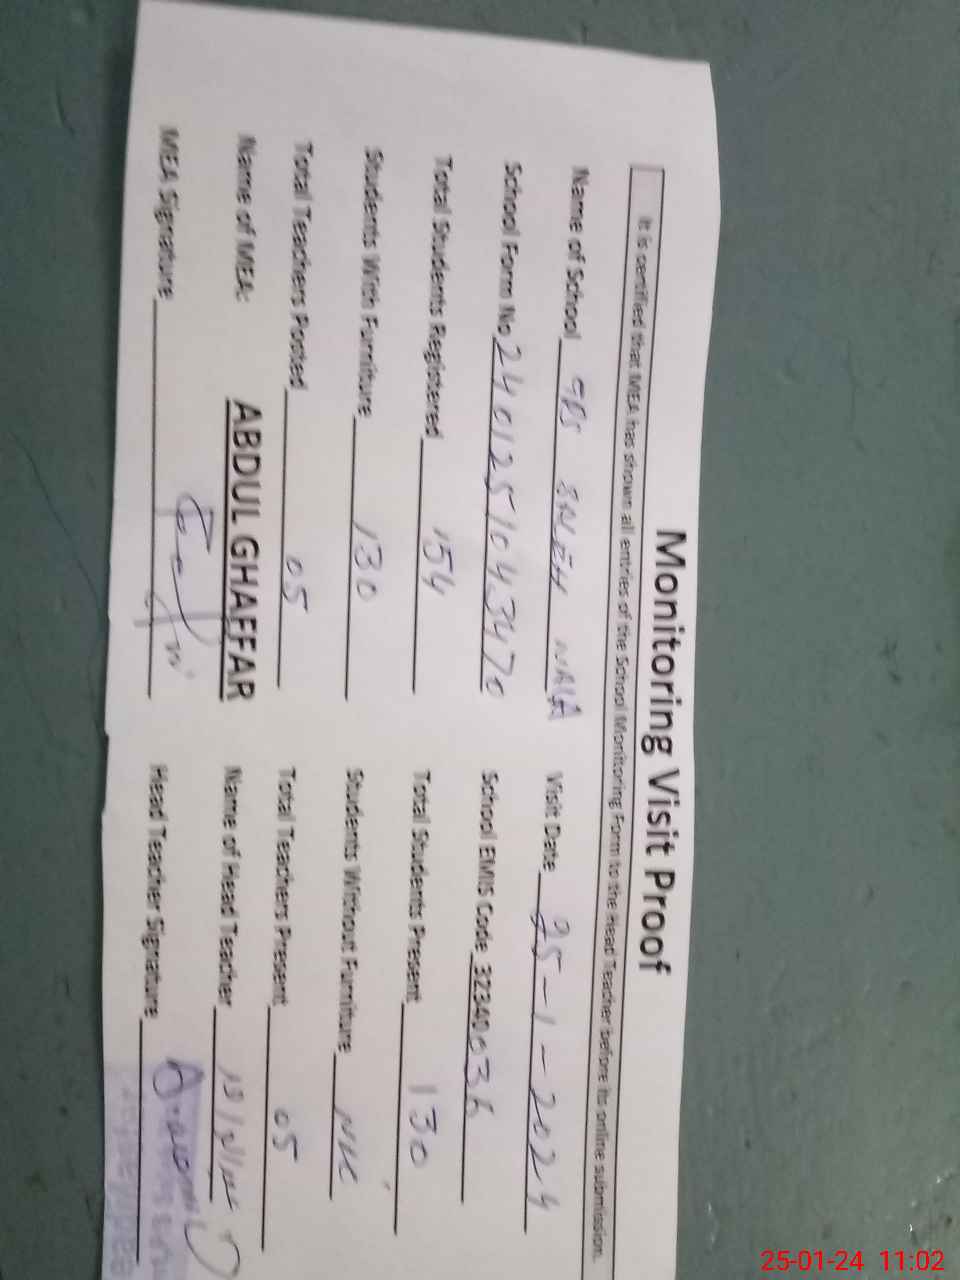 Monitoring Visit Proof
It is certified that MEA has shown all entries of the School Monitoring Form to the Head Teacher before its online submission.
Name of School GPS SALEH WALA Visit Date 25-1-2024
School Form No 2401251043470 School EMIS Code 32340036
Total Students Registered 154 Total Students Present 130
Students With Furniture 130 Students Without Furniture NIL
Total Teachers Posted 05 Total Teachers Present 05
Name of MEA: ABDUL GHAFFAR Name of Head Teacher
MEA Signature Head Teacher Signature
25-01-24 11:02